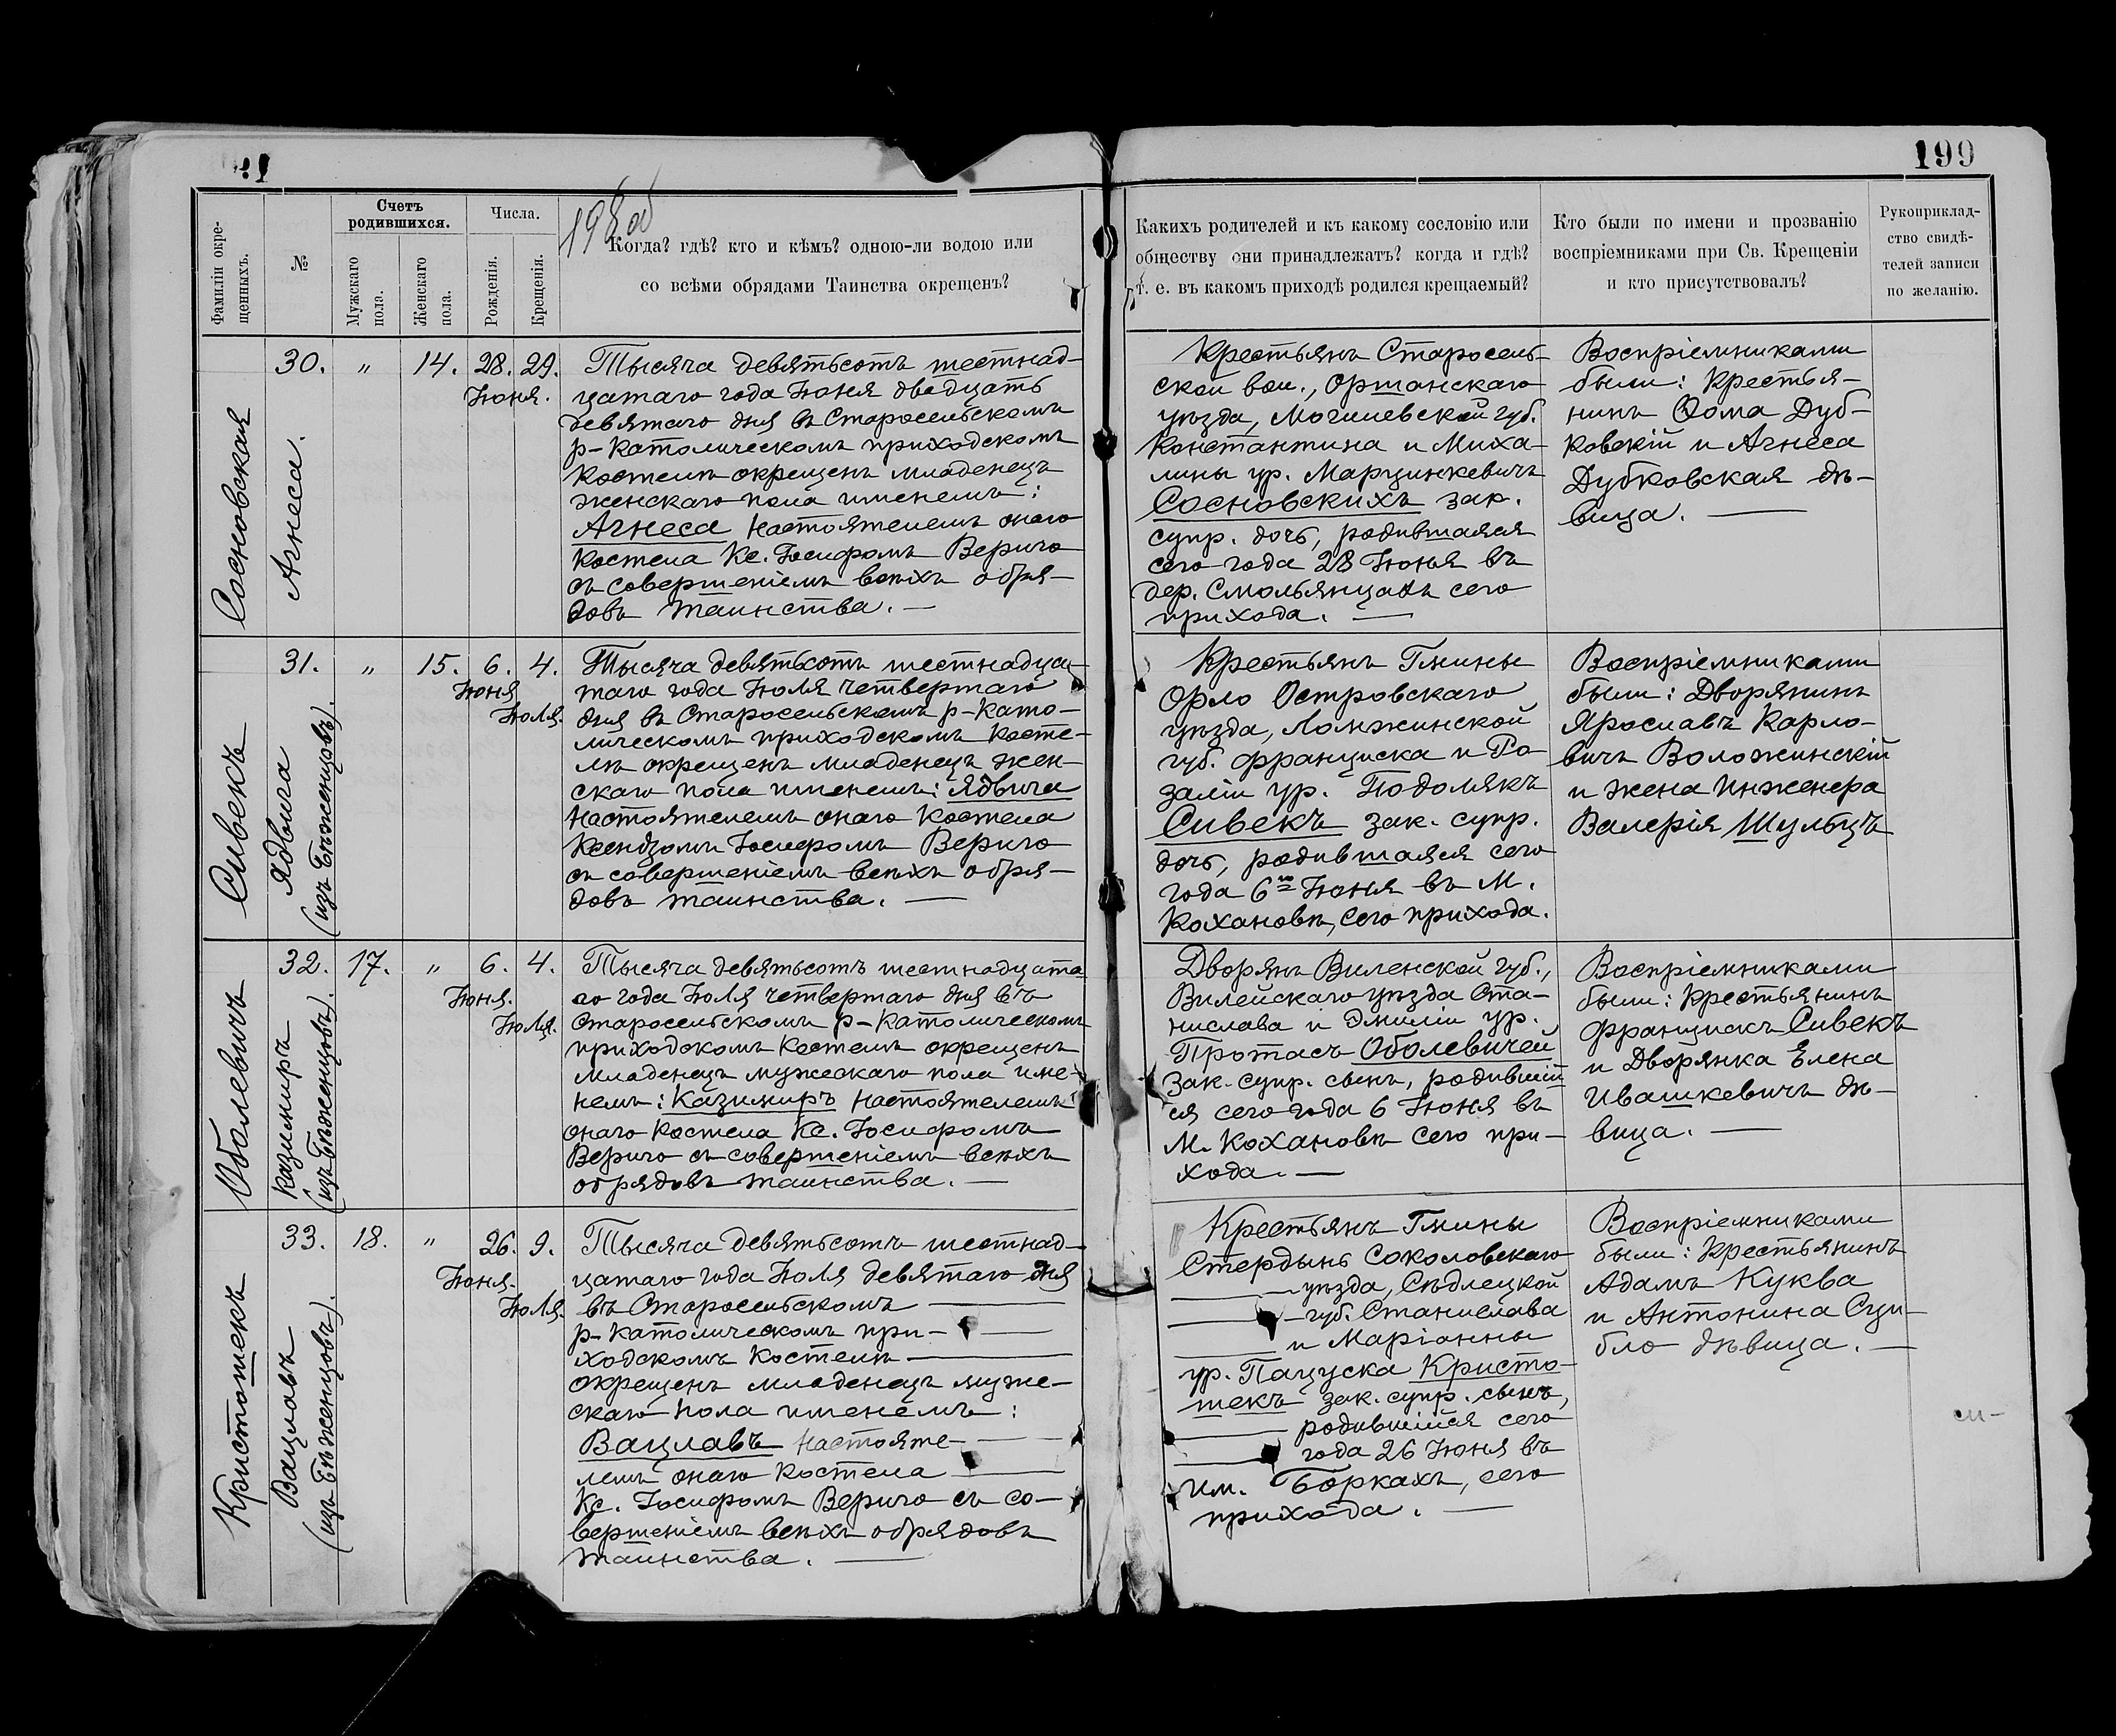 199
198 об
Фамиліи окре-
щенныхъ.
№
Счетъ
родившихся.
Мужскаго
пола.
Женскаго
пола.
Числа.
Рожденія.
Крещенія.
Когда? гдѣ? кто и кѣмъ? одною-ли водою или
со всѣми обрядами Таинства окрещенъ?
Какихъ родителей и къ какому сословію или
обществу они принадлежатъ? когда и гдѣ?
т. е. въ какомъ приходѣ родился крещаемый?
Кто были по имени и прозванію
воспріемниками при Св. Крещеніи
и кто присутствовалъ?
Рукоприклад-
ство свидѣ-
телей записи
по желанію.
Сосновская
Агнеса.
30. „ 14. 28. 29.
Іюня.
Тысяча девятьсотъ шестнад-
цатаго года Іюня двадцать
девятаго дня въ Старосельскомъ
р-католическомъ приходскомъ
костелѣ окрещенъ младенецъ
женскаго пола именемъ:
Агнеса настоятелемъ онаго
костела Кс. Іосифомъ Верыго
съ совершеніемъ всѣхъ обря-
довъ таинства. —
Крестьянъ Старосель-
ской вол., Оршанскаго
уѣзда, Могилевской губ.
Константина и Миха-
лины ур. Марцинкевичъ
Сосновскихъ зак.
супр. дочь, родившаяся
сего года 28 Іюня въ
дер. Смольянцахъ сего
прихода. —
Воспріемниками
были: Крестья-
нинъ Ѳома Дуб-
ковскій и Агнеса
Дубковская дѣ-
вица. —
Сивекъ
Ядвига
(изъ Бѣженцовъ).
31. „ 15. 6. 4.
Іюня
Іюля.
Тысяча девятьсотъ шестнадца-
таго года Іюля четвертаго
дня въ Старосельскомъ р-като-
лическомъ приходскомъ косте-
лѣ окрещенъ младенецъ жен-
скаго пола именемъ: Ядвига
настоятелемъ онаго костела
Ксендзомъ Іосифомъ Верыго
съ совершеніемъ всѣхъ обря-
довъ таинства. —
Крестьянъ Гмины
Орло Островскаго
уѣзда, Ломжинской
губ. Франциска и Ро-
заліи ур. Подолякъ
Сивекъ зак. супр.
дочь, родившаяся сего
года 6го Іюня въ М.
Кохановѣ, сего прихода.
Воспріемниками
были: Дворянинъ
Ярославъ Карло-
вичъ Воложинскій
и жена инженера
Валерія Шульцъ
Оболевичъ
Казимиръ
(изъ Бѣженцовъ).
32. 17. „ 6. 4.
Іюня.
Іюля.
Тысяча девятьсотъ шестнадцата
го года Іюля четвертаго дня въ
Старосельскомъ р-католическомъ
приходскомъ костелѣ окрещенъ
младенецъ мужескаго пола име-
немъ: Казимиръ настоятелемъ
онаго костела Кс. Іосифомъ
Верыго съ совершеніемъ всѣхъ
обрядовъ таинства. —
Дворянъ Виленской губ.,
Вилейскаго уѣзда Ста-
нислава и Эмиліи ур.
Протасъ Оболевичей
зак. супр. сынъ, родившій
ся сего года 6 Іюня въ
М. Кохановѣ сего при-
хода. —
Воспріемниками
были: Крестьянинъ
Францискъ Сивекъ
и Дворянка Елена
Ивашкевичъ дѣ-
вица. —
Кристошекъ
Вацлавъ
(изъ Бѣженцовъ).
33. 18. „ 26. 9.
Іюня.
Іюля.
Тысяча девятьсотъ шестнад-
цатаго года Іюля девятаго дня
въ Старосельскомъ —
р-католическомъ при- —
ходскомъ костелѣ —
окрещенъ младенецъ муже-
скаго пола именемъ:
Вацлавъ настояте- —
лемъ онаго костела —
Кс. Іосифомъ Верыго съ со-
вершеніемъ всѣхъ обрядовъ
таинства. —
Крестьянъ Гмины
Стердынь Соколовскаго
— уѣзда, Сѣдлецкой
— губ. Станислава
— и Маріанны
ур. Пацуска Кристо-
шекъ зак. супр. сынъ,
— родившійся сего
— года 26 Іюня въ
им. Боркахъ, сего
прихода. —
Воспріемниками
были: Крестьянинъ
Адамъ Куква
и Антонина Сци-
бло дѣвица. —